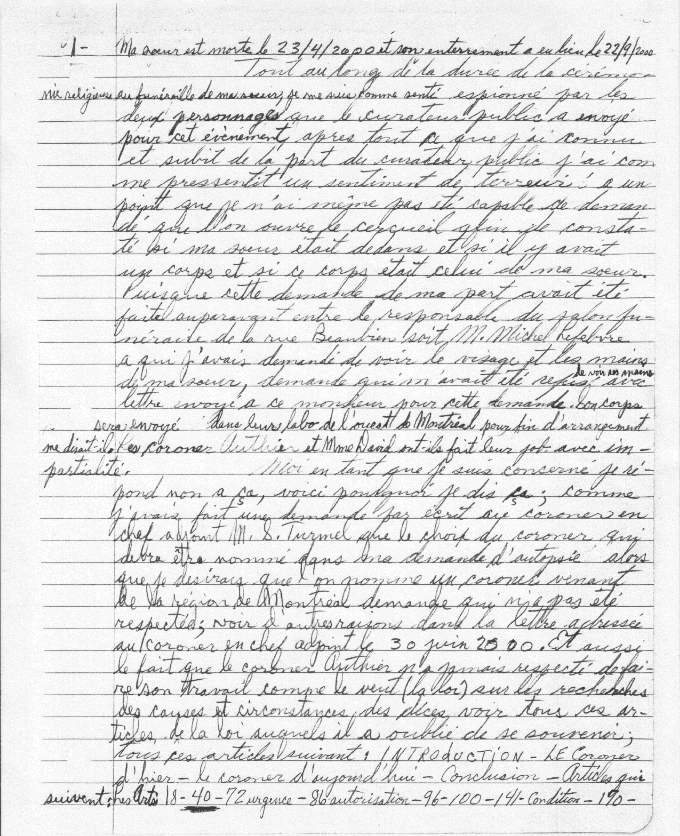 1- Ma sœur est morte le 23/4/2000 et son enterrement a eu lieu le 22/9/2000
Tout au long de la duree de la cérémo-
nie religieuse au funéraille de ma sœur, je me suis comme senté espionné par les
deux personnages que le curateur public a envoyé
pour cet évènement, apres tout ce que j'ai connu
et subit de la part du curateur public j'ai com
me pressentit un sentiment de terreur! a un
point que je n'ai même pas été capable de deman
dé que l'on ouvre le cerçueil afin de consta-
té si ma sœur était dedans et si il y avait
un corps et si ce corps était celui de ma soeur.
Puisque cette demande de ma part avait été
faite auparavant entre le responsable du salon fu-
néraire de la rue Beaubien soit, M. Michel Lefebvre
a qui j'avais demandé de voir le visage et les mains
de ma sœur, demande qui m'avait été refusé avec
de voir ses mains
lettre envoyé a ce monsieur pour cette demande. Son corps
sera envoyé dans leur labo de l'ouest de Montréal pour fin d'arrangement
me disait-il. Les coroner Authier et Mme David ont-ils fait leur job avec im-
partialité. Moi en tant que je suis concerné je ré-
pond non a ça, voici pourquoi je dis ça; comme
j'avais fait une demande par écrit au coroner en
chef adjoint M. S. Turmel que le choix du coroner qui
devra être nommé dans ma demande d'autopsie alors
que je désirais que l'on nomme un coroner venant
de la région de Montréal demande qui n'a pas été
respectée; voir d'autres raisons dans la lettre adressée
au coroner en chef adjoint le 30 juin 2000. Et aussi
le fait que le coroner Authier n'a jamais respecté de fai-
re son travail comme le veut (la loi) sur les recherches
des causes et circonstances des décès, voir tous ces ar-
ticles de la loi auquels il a oublié de se souvenir;
tous ces articles suivant: INTRODUCTION - LE Coroner
d'hier - le coroner d'aujourd'hui - Conclusion - Articles qui
suivent; Les Arts 18-40-72 urgence - 86 autorisation - 96-100-141-Condition - 190-